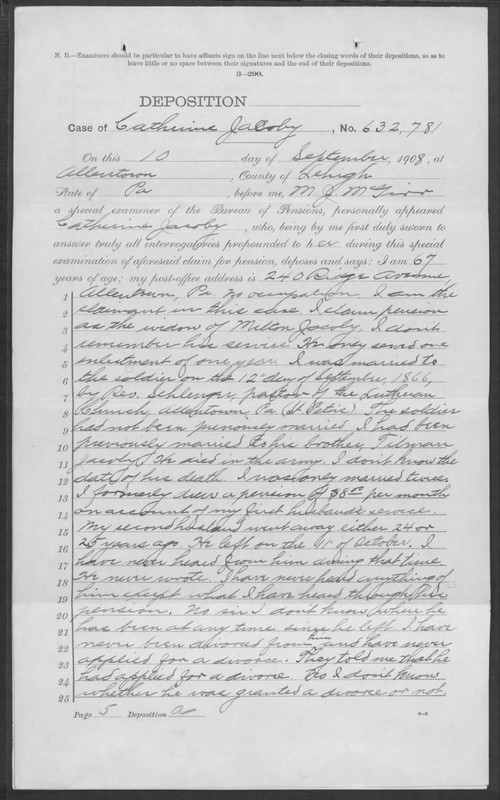 N. B.—Examiners should be particular to have affiants sign on the line next below the closing words of their depositions, so as to
leave little or no space between their signatures and the end of their depositions.
3—290.
DEPOSITION
Case of Catherine Jacoby, No. 632,781
On this 10 day of September, 1908, at
Allentown, County of Lehigh
State of Pa, before me, M J McGirr
a special examiner of the Bureau of Pensions, personally appeared
Catherine Jacoby, who, being by me first duly sworn to
answer truly all interrogatories propounded to her during this special
examination of aforesaid claim for pension, deposes and says: I am 67
years of age; my post-office address is 240 Ridge Avenue,
1 Allentown, Pa. No occupation. I am the
2 claimant in this case. I claim pension
3 as the widow of Milton Jacoby. I dont
4 remember his service. He only served one
5 enlistment of one year. I was married to
6 the soldier on the 12" day of September, 1866,
7 by Rev. pastor of the Lutheran
8 Church, Allentown, Pa The soldier
9 had not been previously married. I had been
10 previously married to his brother, Tilman
11 Jacoby. He died in the army. I don't know the
12 date of his death. I was only married twice.
13 I formerly drew a pension of $8.00 per month
14 on account of my first husband's service.
15 My second husband went away either 24 or
16 25 years ago. He left on the of October. I
17 have never heard from him during that time.
18 He never wrote. I have never heard anything of
19 him except what I have heard through the
20 pension. No sir I don't know where he
21 has been at any time since he left. I have
22 never been divorced from him and have never
23 applied for a divorce. They told me that he
24 had applied for a divorce. I don't know
25 whether he was granted a divorce or not.
Page 5 Deposition A